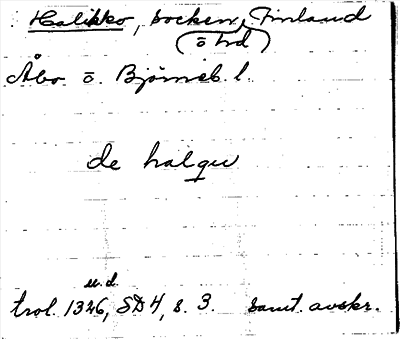 Halikko, socken, Finland
(ō hd)
Åbo ō. Björneb. l.
de halqu
u.d.
trol. 1326, SD 4, s. 3. samt. avskr.